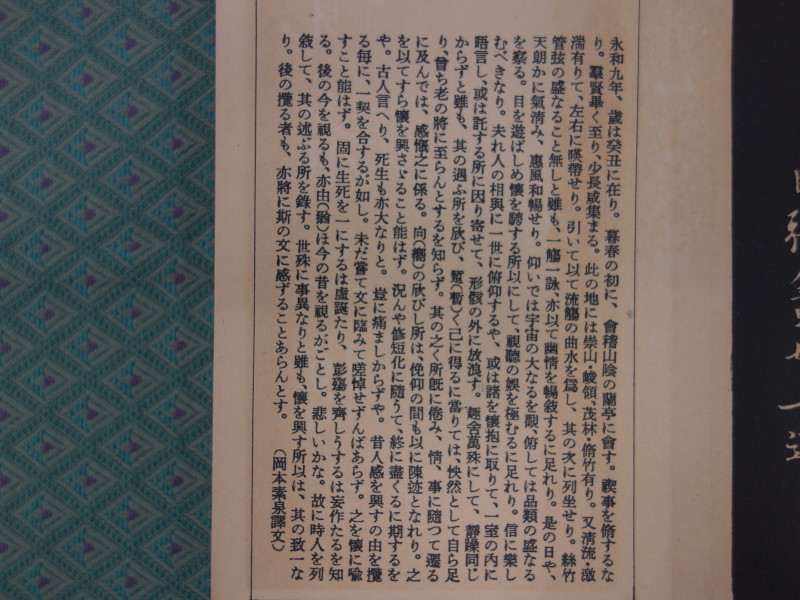 永和九年、歳は癸丑に在り。暮春の初に、會稽山陰の蘭亭に會す。禊事を脩するな
り。羣賢畢く至り、少長咸集まる。此の地には崇山・峻領、茂林・脩竹有り。又清流・激
湍有りて、左右に暎帶せり。引いて以て流觴の曲水を爲し、其の次に列坐せり。絲竹
管弦の盛なること無しと雖も、一觴一詠、亦以て幽情を暢敍するに足れり。是の日や、
天朗かに氣淸み、惠風和暢せり。仰いでは宇宙の大なるを觀、俯しては品類の盛なる
を察る。目を遊ばしめ懷を騁する所以にして、視聽の娯を極むるに足れり。信に樂し
むべきなり。夫れ人の相與に一世に俯仰するや、或は諸を懷抱に取りて、一室の內に
晤言し、或は託する所に因り寄せて、形骸の外に放浪す。趣舍萬殊にして、靜躁同じ
からずと雖も、其の遇ふ所を欣び、蹔(暫)く己に得るに當りては、怏然として自ら足
り、曾ち老の將に至らんとするを知らず。其の之く所旣に倦み、情、事に隨つて遷る
に及んでは、感慨之に係る。向(嚮)の欣びし所は、俛仰の間も以に陳迹となれり。之
を以てすら懷を興さゞること能はず。況んや修短化に隨うて、終に盡くるに期するを
や。古人言へり、死生も亦大なりと。豈に痛ましからずや。昔人感を興すの由を攬
る每に、一契を合するが如し。未だ嘗て文に臨みて嗟悼せずんばあらず。之を懷に喩
すこと能はず。固に生死を一にするは虛誕たり、彭殤を齊しうするは妄作たるを知
る。後の今を視るも、亦由(猶)ほ今の昔を視るがごとし。悲しいかな。故に時人を列
敍して、其の述ぶる所を錄す。世殊に事異なりと雖も、懷を興す所以は、其の致一な
り。後の攬る者も、亦將に斯の文に感ずることあらんとす。
(岡本素泉譯文)